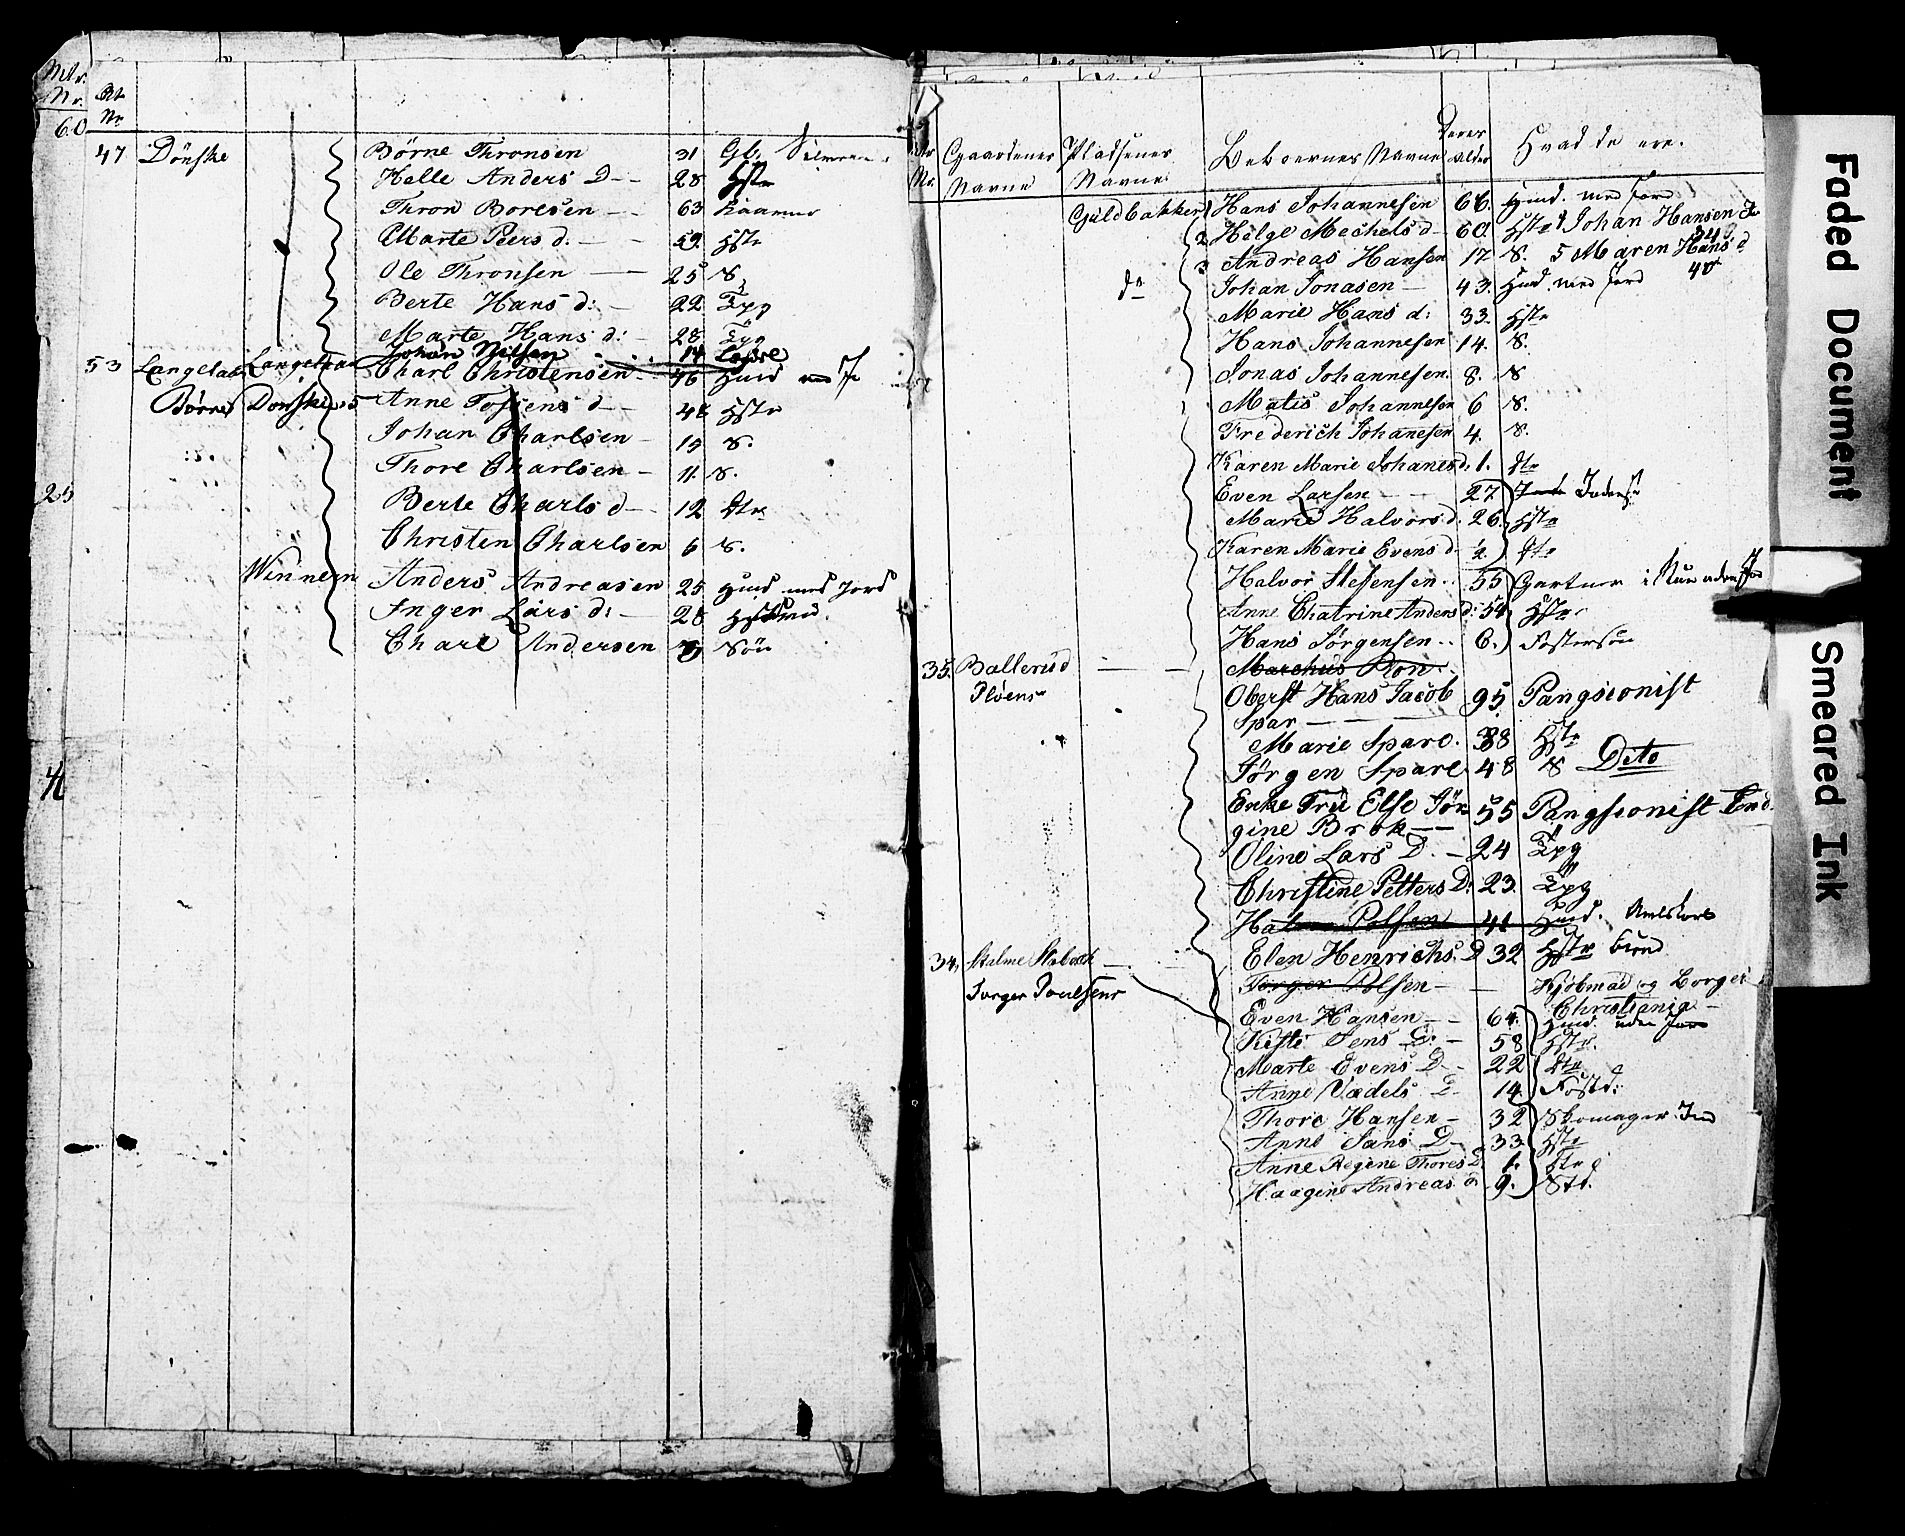 Mtr. Nr. Rt Nr
60
47 Dönske Börne Thronsen 31 Gb.
Helle Anders D - - 28 Hstr
Thron Boresen - - 63 Kaarm
Marte Peers d. - 59 Hstr
Ole Thronsen - 25 S
Berte Hans d: - 22 Tpg
Marte Hans d: - 28 Tpg
Johan Nilsen 14
53 Langeland Charl Christensen 46 Huusd med
Börnes Donske Anne d - 48 Hstr
Johan Charlsen - 19 S.
Thore Charlsen - 11. S.
25 Berte Charls d - 12 dtr
Christen Charlsen 6 S.
Winnern Anders Andreasen 25 Huusd med Jord
Inger Lars d: - 28
Charl Andersen Sön
Nr. Gaardenes Navne Pladsenes Navne Beboernes Navne Deres Alder Hvad de ere.
Guldbakken 1 Hans Johannesen 66. Huusd. med Jord
2 Helge Mechels d - 60. Hstr 4 Johan Hansen
3 Andreas Hansen 17 S. 5 Maren Hans d
do Johan Jonasen - 43. Huusd. med Jord
Marie Hans d: 33. Hstr
Hans Johannesen 14. S.
Jonas Johannesen. 8. S
Matis Johannesen 6 S.
Frederich Johanesen 4. S.
Karen Marie Johanes d. 1. dtr
Even Larsen - - 27 Inderst
Marie Halvors d. 26. Hstr
Karen Marie Evens d. 2. dtr
Halvor Stefensen .. 55 Gartner
Anne Chatrine Anders d: 54 Hstr
Hans Jörgensen .. 6. Fostersön
35. Ballerud Marchus
Plöens Oberst Hans Jacob 95 Pangsionist
Spar - - -
Marie Spare. 88 Hstr
Jörgen Spare 48 S Dito
Enke Frü Else Jör 55 Pangsionist
gine Brok - -
Oline Lars D. - 24 Tpg
Christine Petters D: 23. Tpg
Polsen 41 Huusd.
34, Elen Henrichs. D 32 Hstr
Jörger Poulsens Jörger Polsen - - Kjöbmad og Borger i
Christiania -
Even Hansen - - 64. Huusd. uden Jord
Kisti Jens D. - 58 Hstr.
Marte Evens D - 22 dtr
Anne D. 14. Fost d:
Thore Hansen - 32 Skomager Ind
Anne D - 33 Hstr
Anne Regine Thores D 1. dtr
Haagine Andreas d. 9. Std.
Faded Document
Smeared Ink